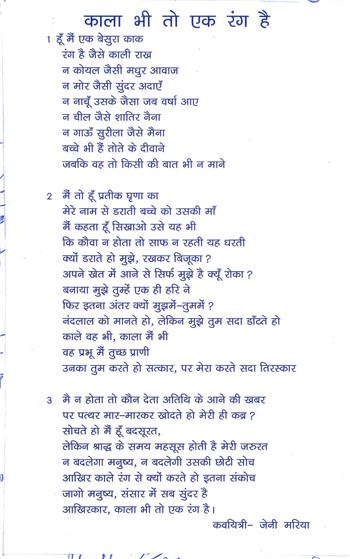 काला भी तो एक रंग है
1 हूँ मैं एक बेसुरा काक
रंग है जैसे काली राख
न कोयल जैसी मधुर आवाज
न मोर जैसी सुंदर अदाएँ
न नाचूँ उसके जैसा जब वर्षा आए
न चील जैसे शातिर नैना
न गाऊँ सुरीला जैसे मैना
बच्चे भी हैं तोते के दीवाने
जबकि वह तो किसी की बात भी न माने
2 मैं तो हूँ प्रतीक घृणा का
मेरे नाम से डराती बच्चे को उसकी माँ
मैं कहता हूँ सिखाओ उसे यह भी
कि कौवा न होता तो साफ न रहती यह धरती
क्यों डराते हो मुझे, रखकर बिजूका ?
अपने खेत में आने से सिर्फ मुझे है क्यूँ रोका ?
बनाया मुझे तुम्हें एक ही हरि ने
फिर इतना अंतर क्यों मुझमें-तुममें ?
नंदलाल को मानते हो, लेकिन मुझे तुम सदा डाँटते हो
काले वह भी, काला मैं भी
वह प्रभू मैं तुच्छ प्राणी
उनका तुम करते हो सत्कार, पर मेरा करते सदा तिरस्कार
3 मै न होता तो कौन देता अतिथि के आने की खबर
पर पत्थर मार-मारकर खोदते हो मेरी ही कब्र ?
सोचते हो मैं हूँ बदसूरत,
लेकिन श्राद्ध के समय महसूस होती है मेरी जरुरत
न बदलेगा मनुष्य, न बदलेगी उसकी छोटी सोच
आखिर काले रंग से क्यों करते हो इतना संकोच
जागो मनुष्य, संसार में सब सुंदर है
आखिरकार, काला भी तो एक रंग है।
कवयित्री- जेनी मरिया